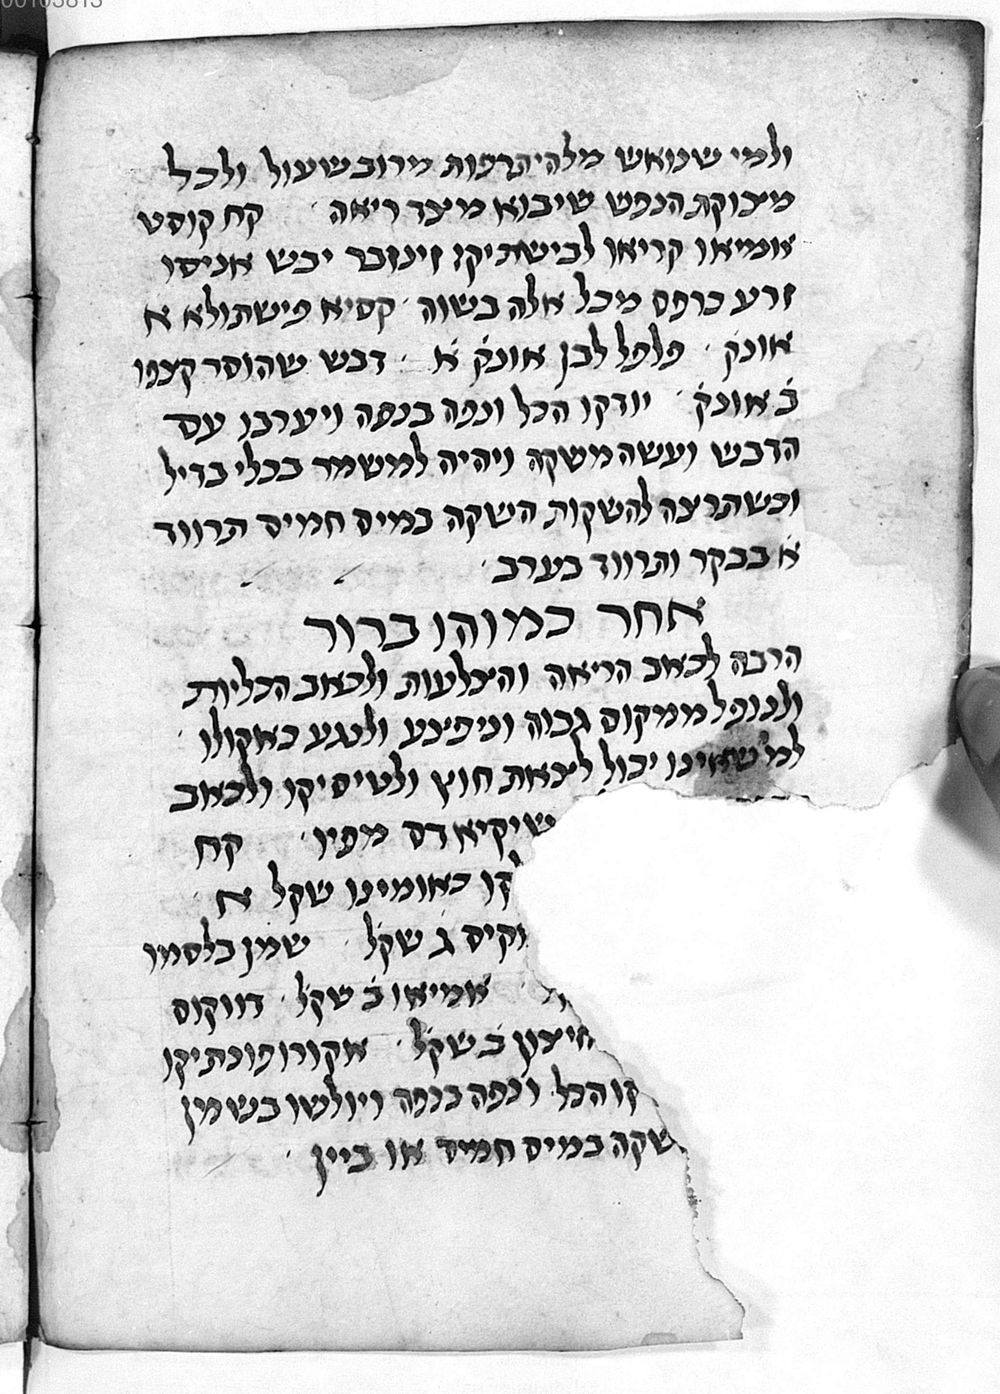 00103813
ולמי שנואש מלהירפות מרוב שעול ולכל
מצוקת הנפש שיבוא מצד ריאה קח קוסט
אמיאו קריאו לבישתיקו זינזבר יבש אניסו
זרע כרפס מכל אלה בשוה קסיא פישתולא א
אונק פלפל לבן אונק א דבש שהוסר קצפו
ב אונק יודקו הכל ונפה בנפה ויערבו עם
הדבש ועשה משקה ויהיה למשמר בכלי בדיל
וכשתרצה להשקות השקה במים חמים תרווד
א בבקר ותרווד בערב
אחר כמוהו ברור
הרבה לכאב הריאה והצלעות ולכאב הכליות
ולנופל ממקום גבוה וניפצע ולנגע באקולו
למי שאינו יכול לצאת חוץ ולטיסיקו ולכאב
שיקיא דם מפיו קח
קו באומינו שקל א
וקים ג שקל שמן בלסמו
אמיאו ב שקל דווקוס
חיצון ב שקל אקורופונתיקו
קו הכל ונפה בנפה ויולשו בשמן
שקה במים חמים או ביין